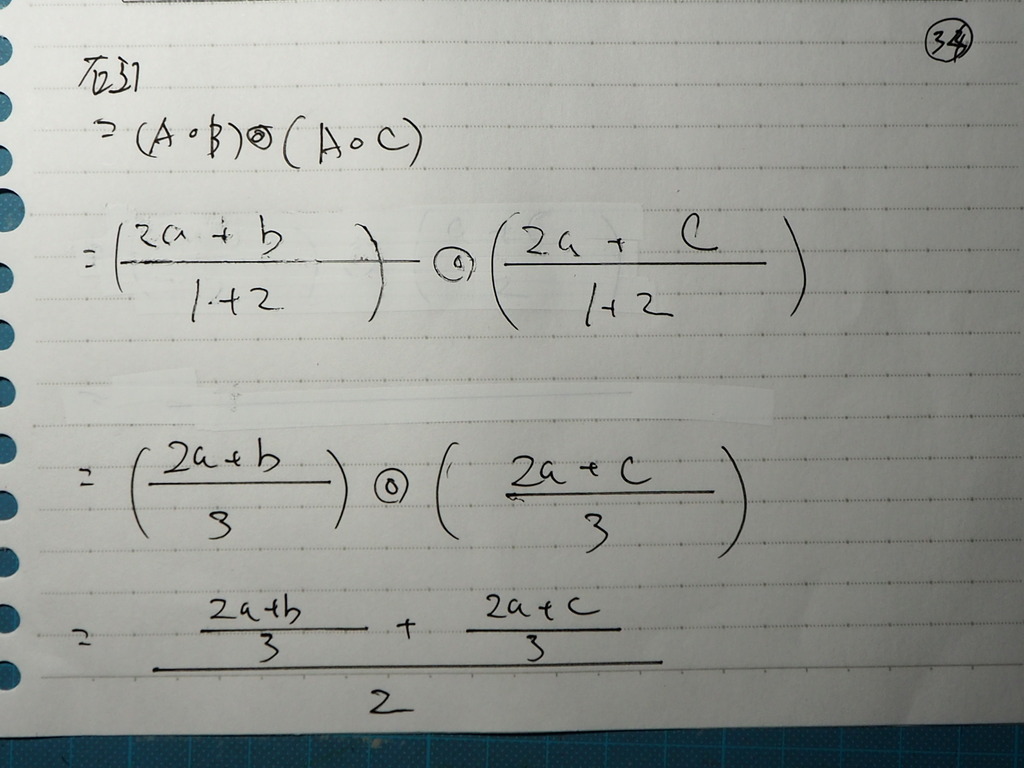 34
右辺
= (A∘B)⊚(A∘C)
= (2a + b / 1+2) ⊚ (2a + c / 1+2)
= (2a+b / 3) ⊚ (2a+c / 3)
= (2a+b / 3 + 2a+c / 3) / 2